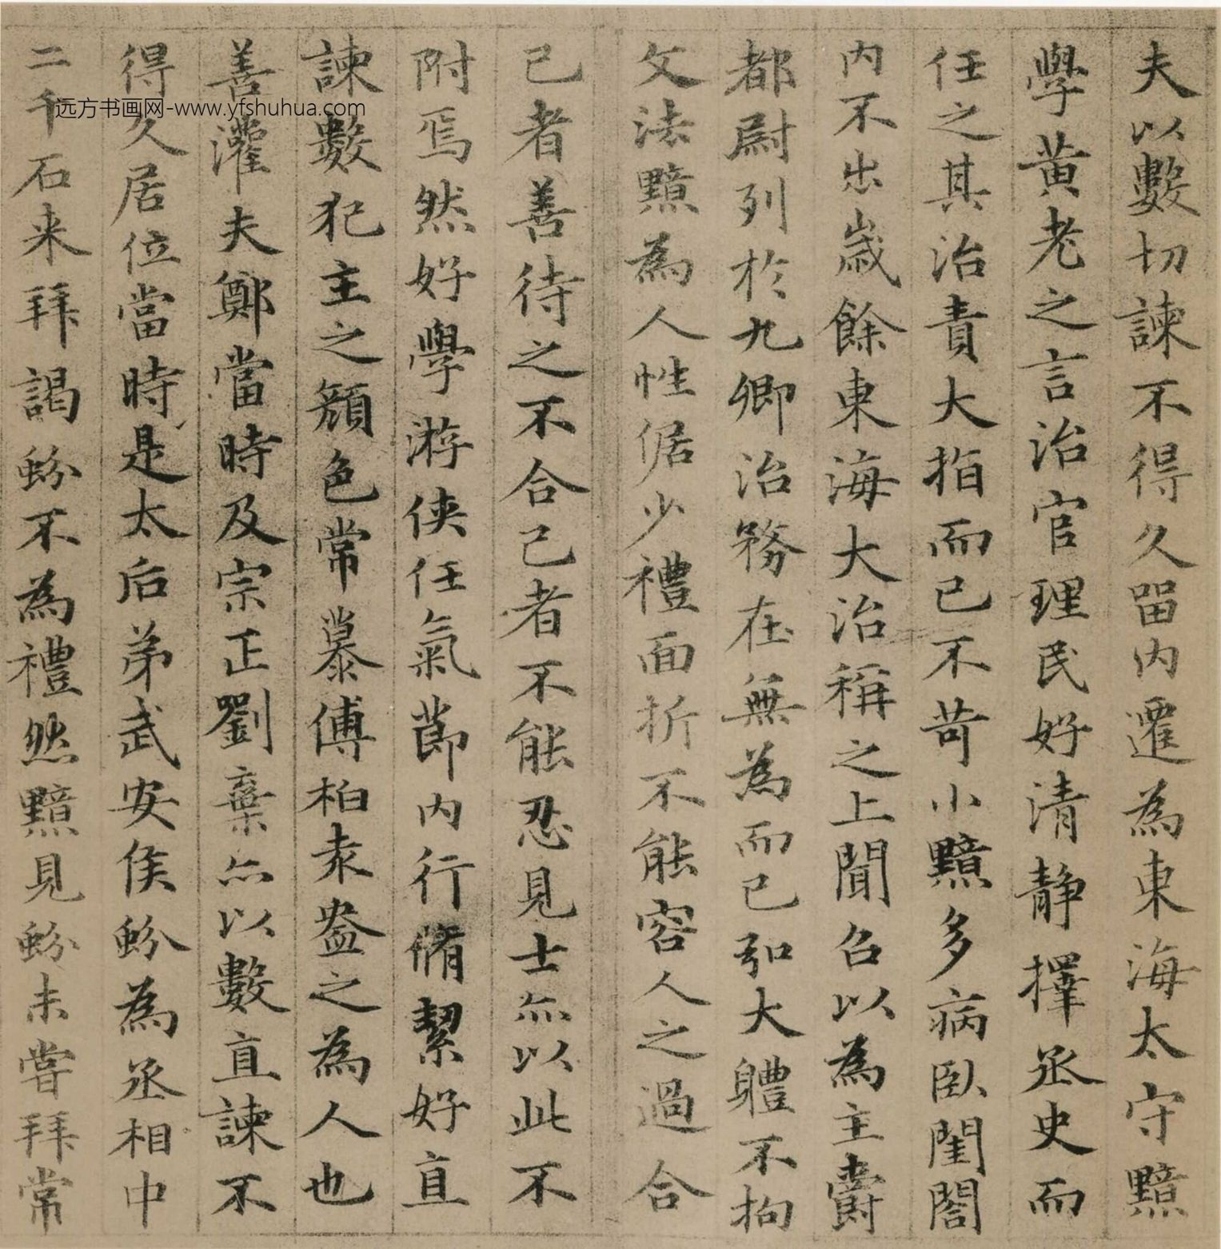 夫以數切諫不得久留内遷為東海太守黯
學黄老之言治官理民好清静擇丞史而
任之其治責大指而已不苛小黯多病臥閨閤
内不出歲餘東海大治稱之上聞召以為主爵
都尉列於九卿治務在無為而已弘大體不拘
文法黯為人性倨少禮面折不能容人之過合
己者善待之不合己者不能忍見士亦以此不
附焉然好學游俠任氣節内行脩絜好直
諫數犯主之顏色常慕傅柏袁盎之為人也
善灌夫鄭當時及宗正劉棄亦以數直諫不
得久居位當時是太后弟武安侯蚡為丞相中
二千石来拜謁蚡不為禮然黯見蚡未嘗拜常
远方书画网-www.yfshuhua.com